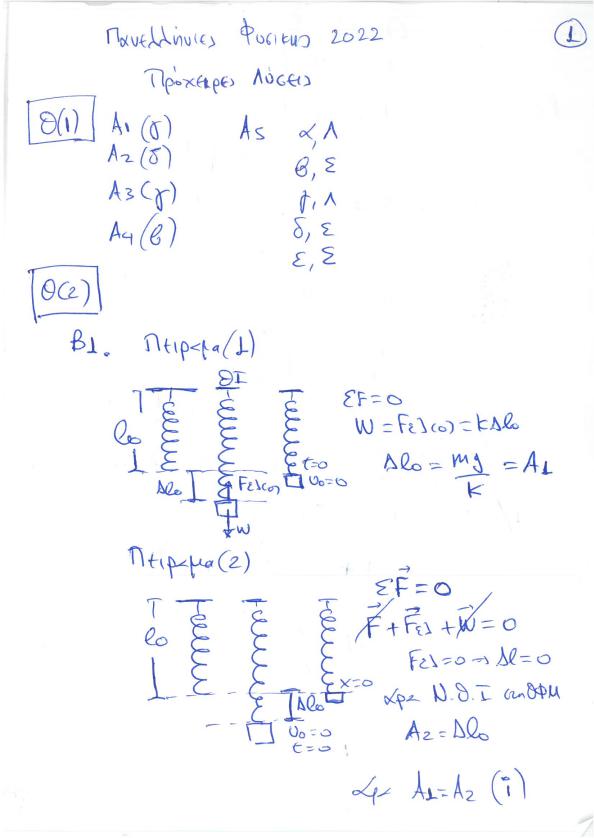 Πανελλήνιες Φυσικης 2022
1
Πρόχειρες Λύσεις
Θ(1)
A1 (γ)
A2 (δ)
A3 (γ)
A4 (β)
A5
α, Λ
β, Σ
γ, Λ
δ, Σ
ε, Σ
Θ(2)
B1. Πειραμα (1)
l₀
Δl₀
ΘΙ
Fελ(0)
W
t=0
υ₀=0
ΣF=0
W = Fελ(0) = kΔl₀
Δl₀ = mg/k = A1
Πειραμα (2)
l₀
Δl₀
υ₀=0
t=0
x=0
ΣF⃗=0
F⃗ + F⃗ελ + W⃗ = 0
Fελ=0 → Δl=0
αρα Ν.Θ.Ι στη ΘΦΜ
A₂=Δl₀
αρα A1=A2 (i)